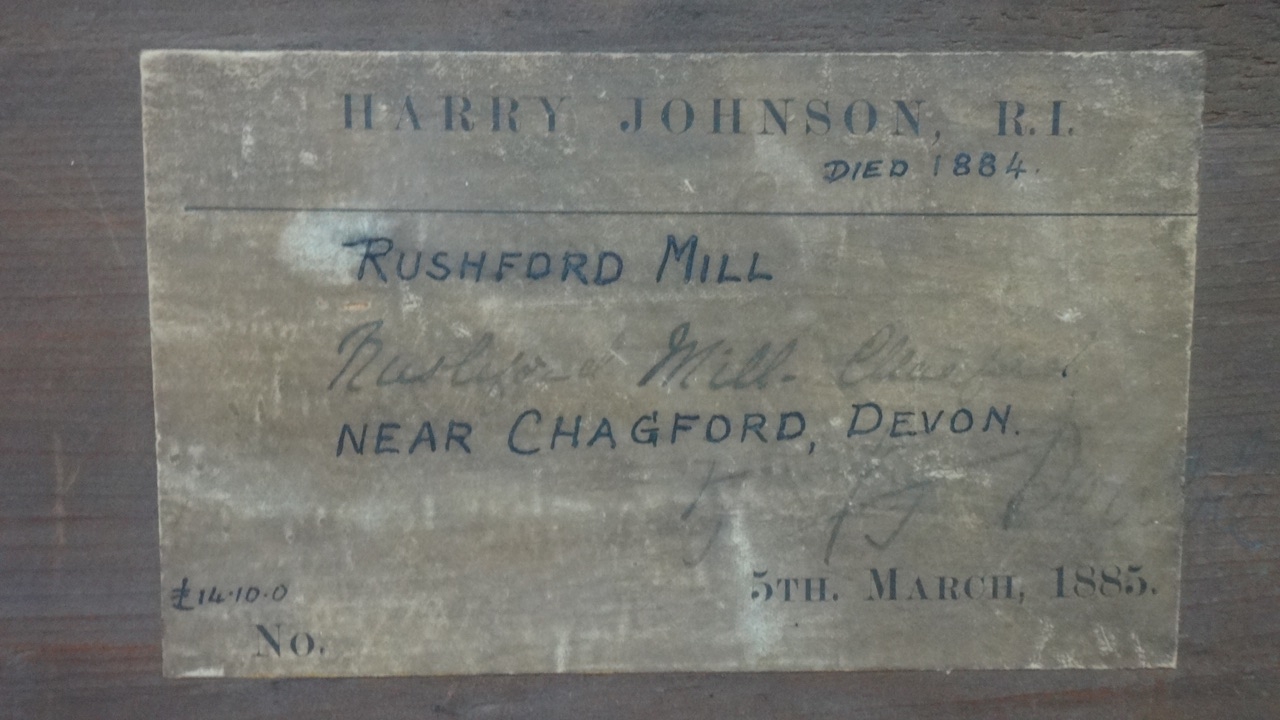 HARRY JOHNSON, R.I.
DIED 1884.
RUSHFORD MILL
Rushford Mill. Chagford
NEAR CHAGFORD, DEVON.
£14.10.0
5TH. MARCH, 1885.
No.